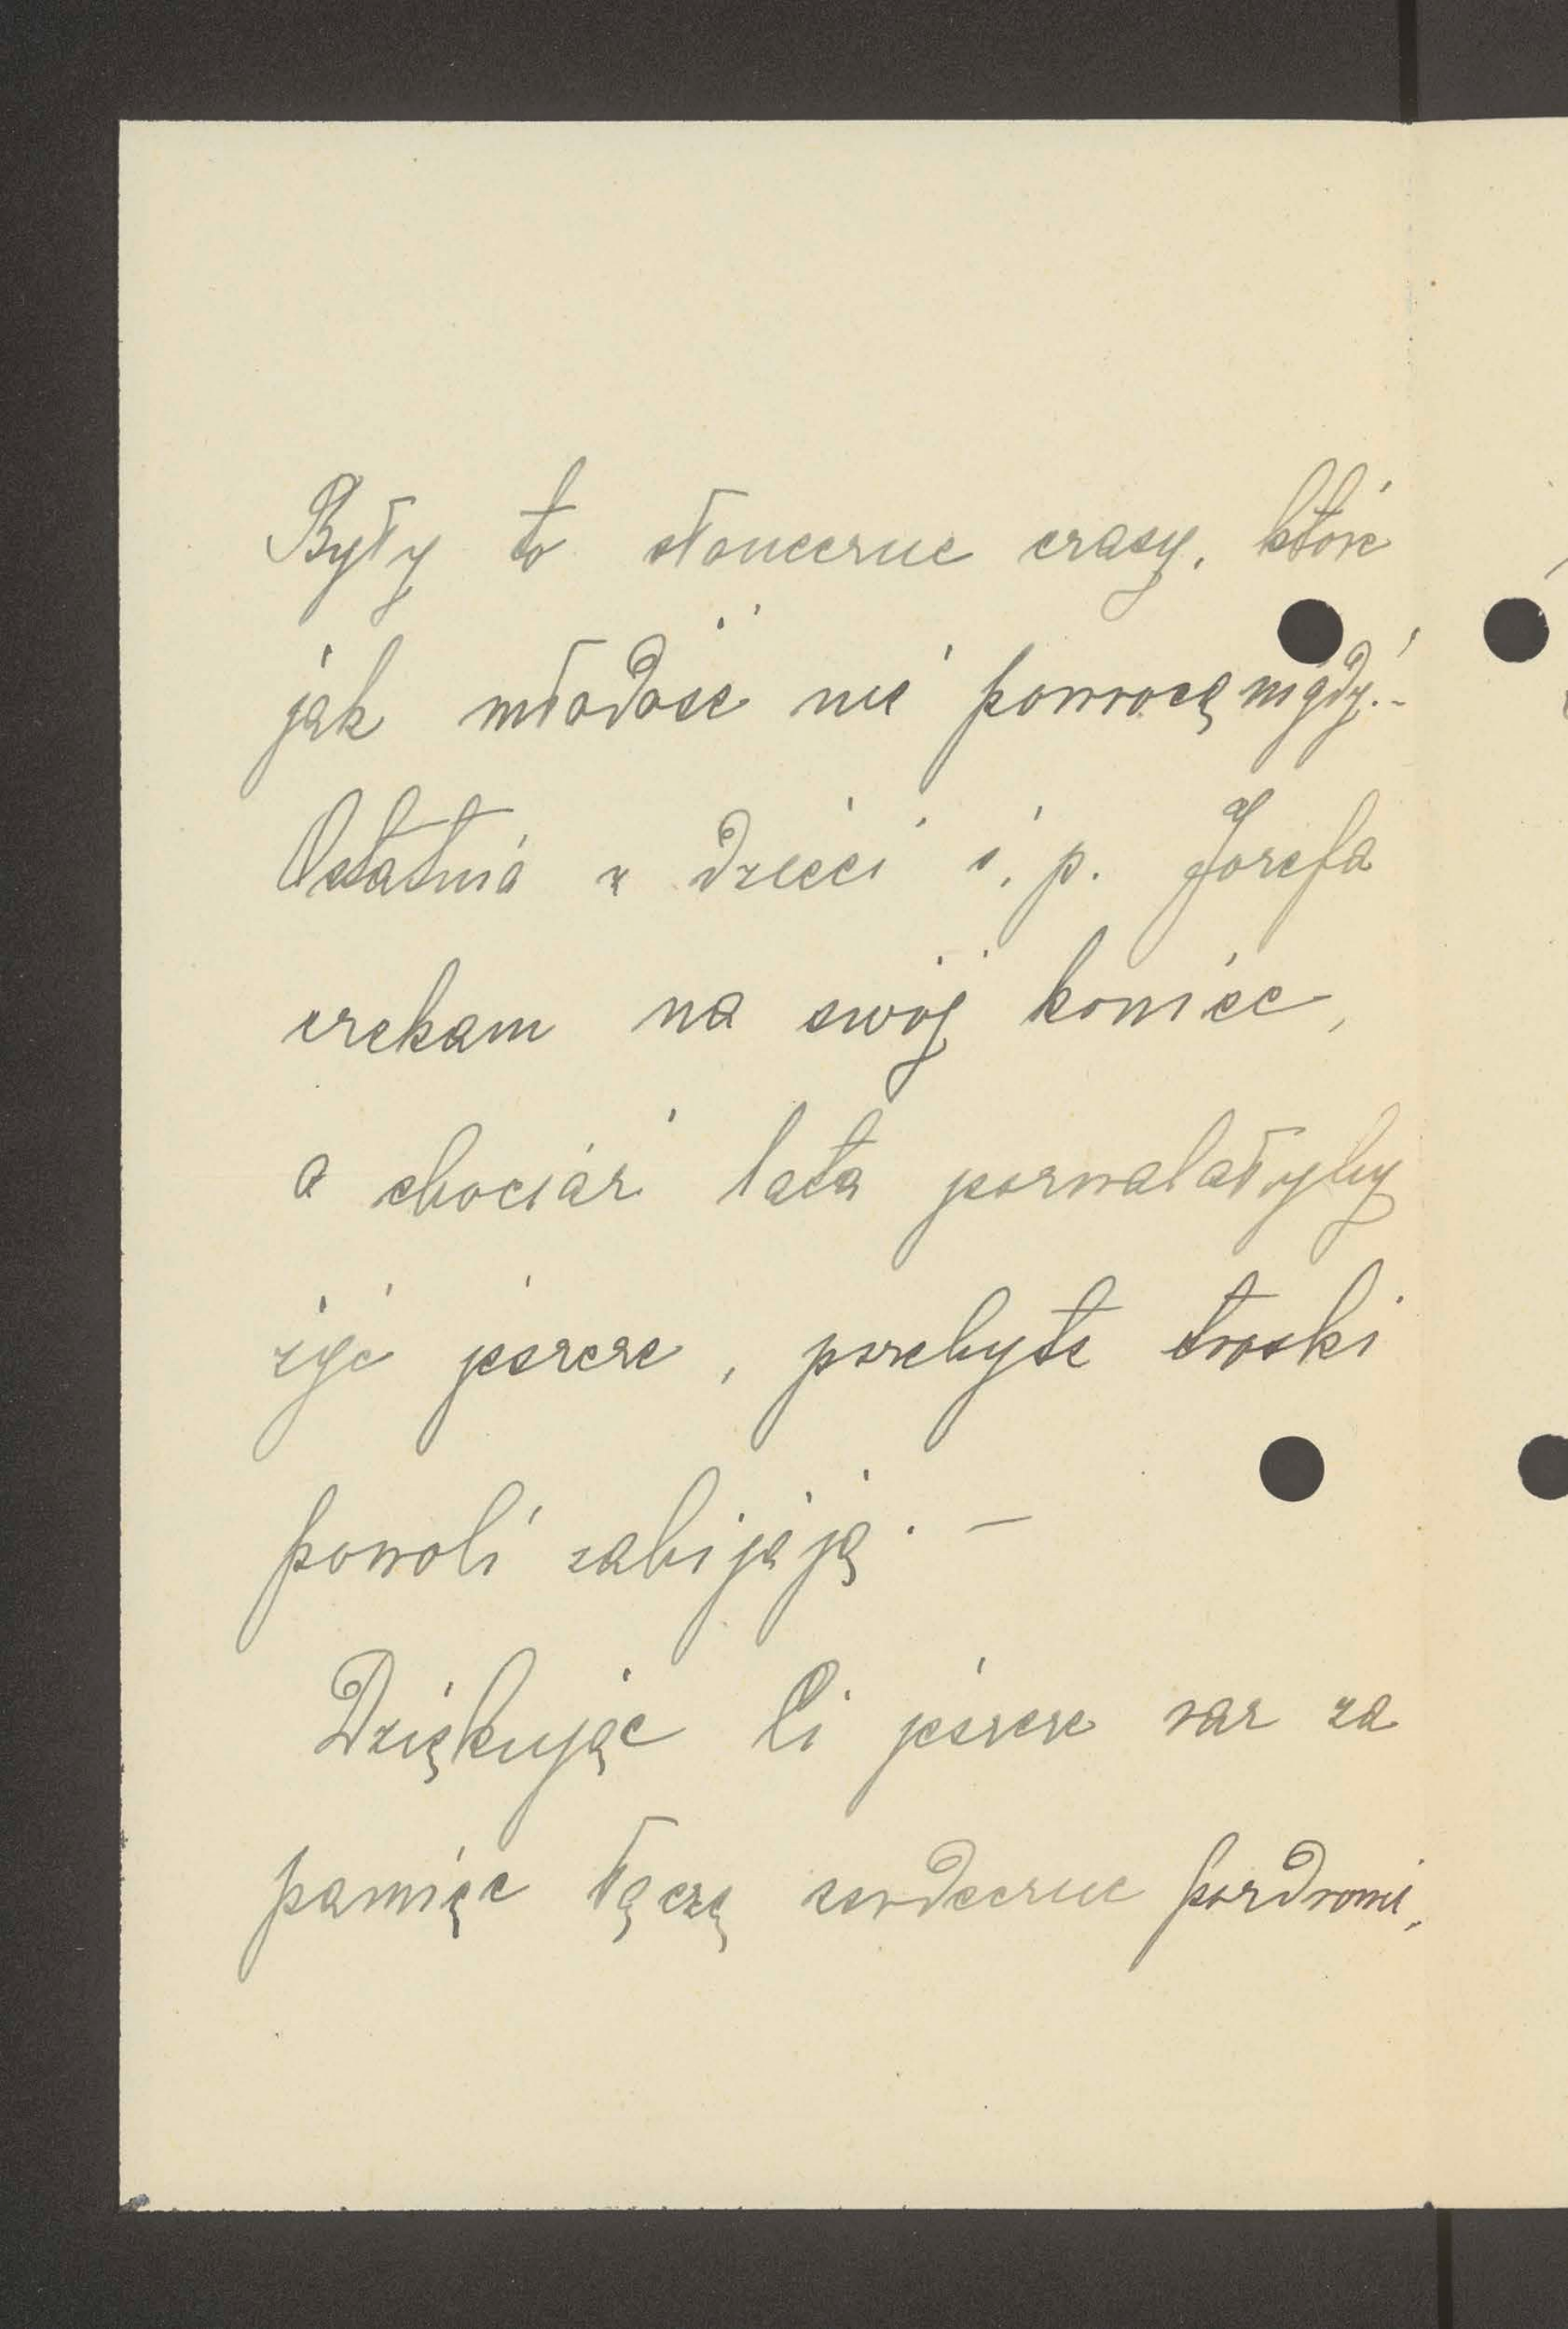 Były to słoneczne czasy, które
jak młodość nie powrócą nigdy.-
Ostatnia z dzieci ś.p. Józefa
czekam na swój koniec,
a chociaż lata pozwalałyby
żyć jeszcze, przebyte troski
powoli zabijają. —
Dziękując Ci jeszcze raz za
pamięć łączę serdeczne pozdrowie,